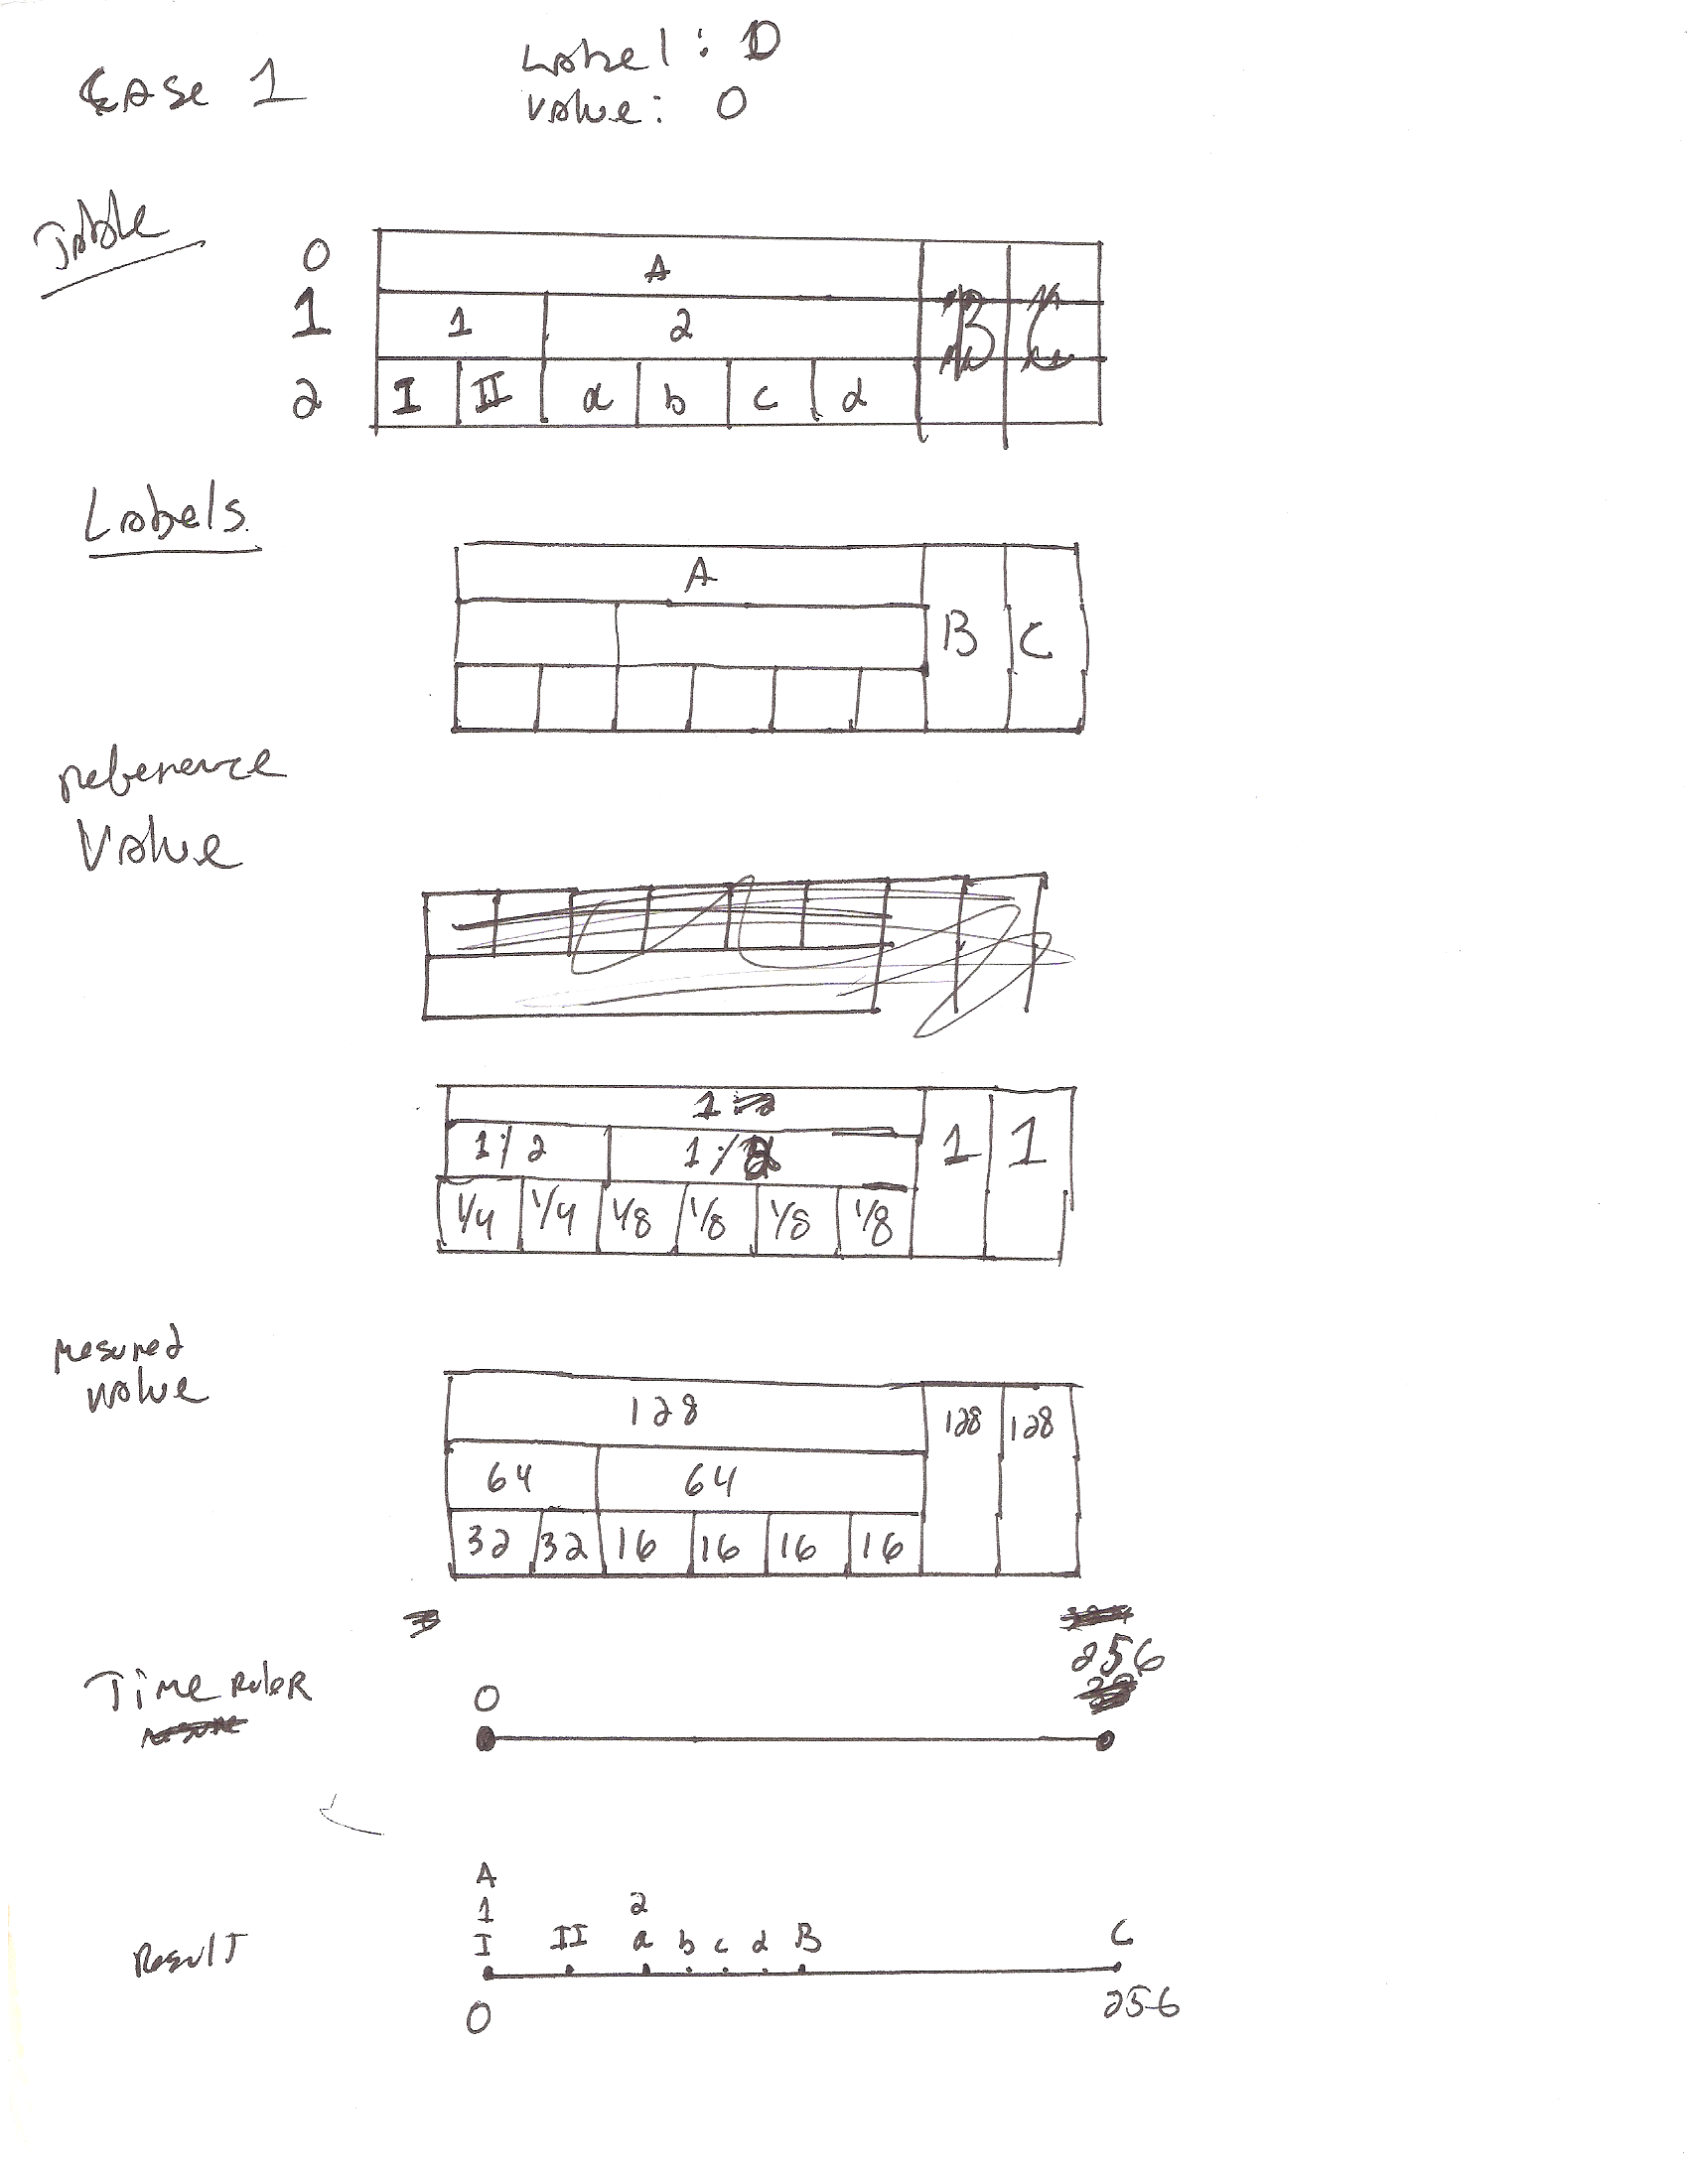 Case 1
Label: D
Value: 0
Table
0 A
1 1 2 B C
2 I II a b c d
Labels
A
B C
reference
Value
1
1/2 1/2 1 1
1/4 1/4 1/8 1/8 1/8 1/8
mesured
value
128 128 128
64 64
32 32 16 16 16 16
256
Time ruler
0
A
1 2
I II a b c d B C
Result
0 256